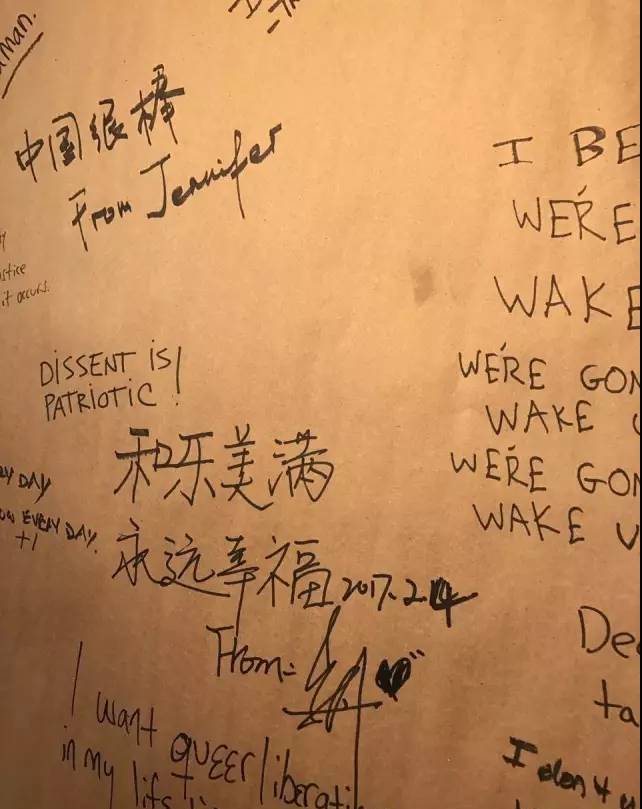 中国很棒
From Jennifer
it occurs.
DISSENT IS
PATRIOTIC!
和乐美满
DAY
EVERY DAY.
+1
永远幸福 2017.2.4
From=
I want queer liberati
in my
I BE
WE'RE
WAKE
WE'RE GON
WAKE U
WE'RE GON
WAKE U
De
ta
I don't